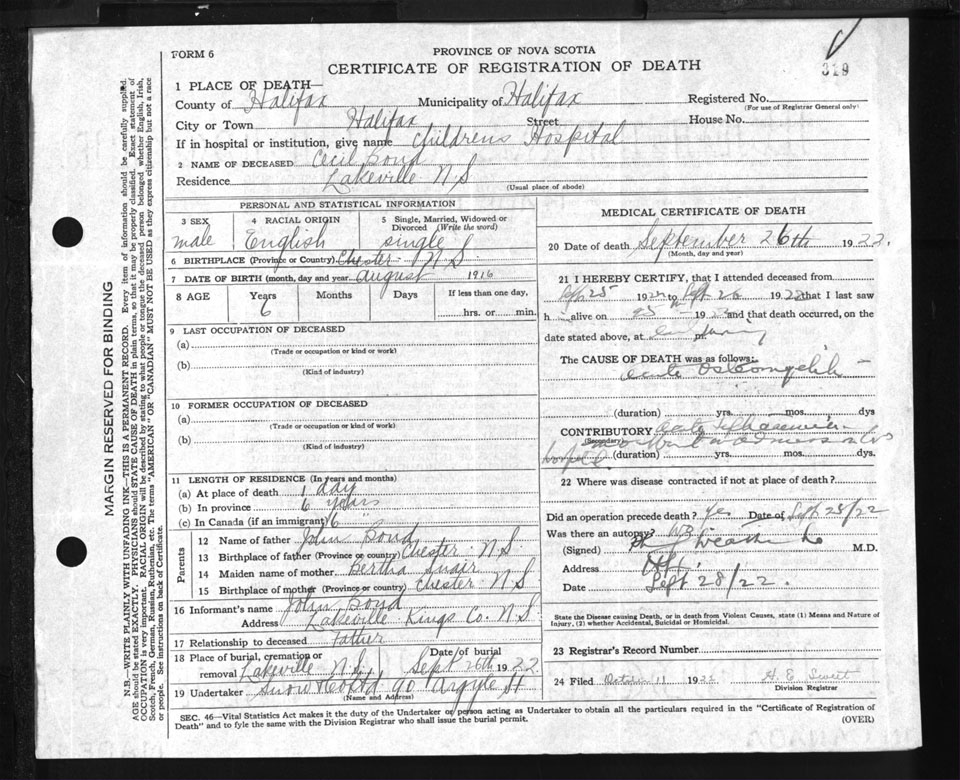 FORM 6
PROVINCE OF NOVA SCOTIA
CERTIFICATE OF REGISTRATION OF DEATH
319
1 PLACE OF DEATH—
County of Halifax Municipality of Halifax Registered No.
(For use of Registrar General only)
City or Town Halifax Street House No.
If in hospital or institution, give name Childrens Hospital
2 NAME OF DECEASED Cecil Boyd
Residence Lakeville N.S
(Usual place of abode)
PERSONAL AND STATISTICAL INFORMATION
3 SEX 4 RACIAL ORIGIN 5 Single, Married, Widowed or Divorced (Write the word)
male English single
6 BIRTHPLACE (Province or Country) Chester N.S.
7 DATE OF BIRTH (month, day and year) August 1916
8 AGE Years Months Days If less than one day,
6 hrs. or min.
9 LAST OCCUPATION OF DECEASED
(a)
(Trade or occupation or kind or work)
(b)
(Kind of industry)
10 FORMER OCCUPATION OF DECEASED
(a)
(Trade or occupation or kind of work)
(b)
(Kind of industry)
11 LENGTH OF RESIDENCE (In years and months)
(a) At place of death 1 day
(b) In province 6 years
(c) In Canada (if an immigrant) 6 "
Parents
12 Name of father John Boyd
13 Birthplace of father (Province or country) Chester N.S.
14 Maiden name of mother Bertha
15 Birthplace of mother (Province or country) Chester N S
16 Informant's name John Boyd
Address Lakeville Kings Co. N.S
17 Relationship to deceased Father
18 Place of burial, cremation or removal Lakeville N.S. Date of burial Sept 26th 1922
19 Undertaker Snow & Co Ltd 90 Argyle St
(Name and Address)
MEDICAL CERTIFICATE OF DEATH
20 Date of death September 26th 1922.
(Month, day and year)
21 I HEREBY CERTIFY, that I attended deceased from
Sept 25 1922 to Sept 26 1922 that I last saw
h alive on 25 1922 and that death occurred, on the
date stated above, at m.
The CAUSE OF DEATH was as follows:
acute Osteomyelitis
(duration) yrs. mos. dys
CONTRIBUTORY
(Secondary)
(duration) yrs. mos. dys.
22 Where was disease contracted if not at place of death?
Did an operation precede death? Yes Date of Sept 25/22
Was there an autopsy?
(Signed) M.D.
Address
Date Sept 28/22.
State the Disease causing Death, or in death from Violent Causes, state (1) Means and Nature of Injury, (2) whether Accidental, Suicidal or Homicidal.
23 Registrar's Record Number
24 Filed October 11 1922 H. E.
Division Registrar
SEC. 46—Vital Statistics Act makes it the duty of the Undertaker or person acting as Undertaker to obtain all the particulars required in the "Certificate of Registration of
Death" and to fyle the same with the Division Registrar who shall issue the burial permit. (OVER)
MARGIN RESERVED FOR BINDING
N.B.—WRITE PLAINLY WITH UNFADING INK—THIS IS A PERMANENT RECORD. Every item of information should be carefully supplied.
AGE should be stated EXACTLY. PHYSICIANS should STATE CAUSE OF DEATH in plain terms, so that it may be properly classified. Exact statement of
OCCUPATION is very important. RACIAL ORIGIN will be described by stating to what people or tongue the deceased person belonged whether English, Irish,
Scotch, French, German, Russian, Ruthenian, etc. The terms "AMERICAN" OR "CANADIAN" MUST NOT BE USED as they express citizenship but not a race
or people. See instructions on back of Certificate.